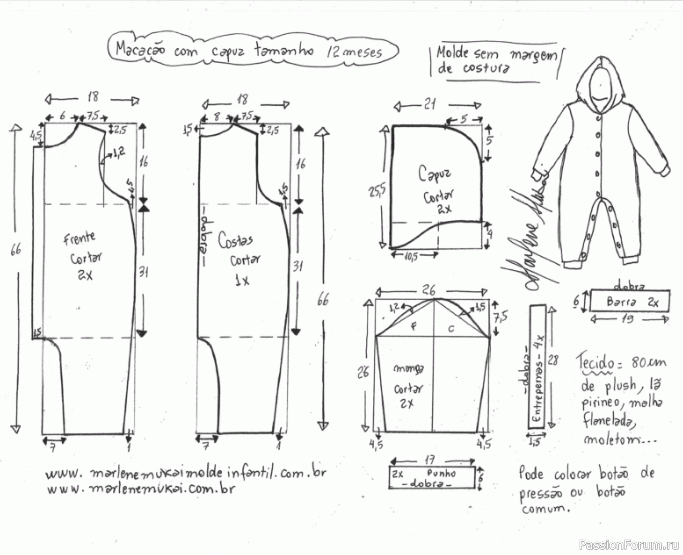 Macacão com capuz tamanho 12 meses
Molde sem margem
de costura
18
6
7,5
4,5
2,5
1,2
16
1,5
66
Frente
cortar
2x
31
1,5
7
1
18
8
7,5
1,5
2,5
16
1,5
dobra
Costas
cortar
1x
31
66
7
1
21
5
5
Capuz
cortar
2x
25,5
4
10,5
26
1,2
1,5
7,5
F
C
26
manga
cortar
2x
4,5
4,5
17
2x Punho
-dobra-
6
-dobra-
Entrepernas - 4x
28
1,5
dobra
6
Barra 2x
19
Marlene Mukai
Tecido = 80cm
de plush, lã
pirineo, malha
flanelada,
moletom...
Pode colocar botão de
pressão ou botão
comum.
www.marlenemukaimoldeinfantil.com.br
www.marlenemukai.com.br
PassionForum.ru